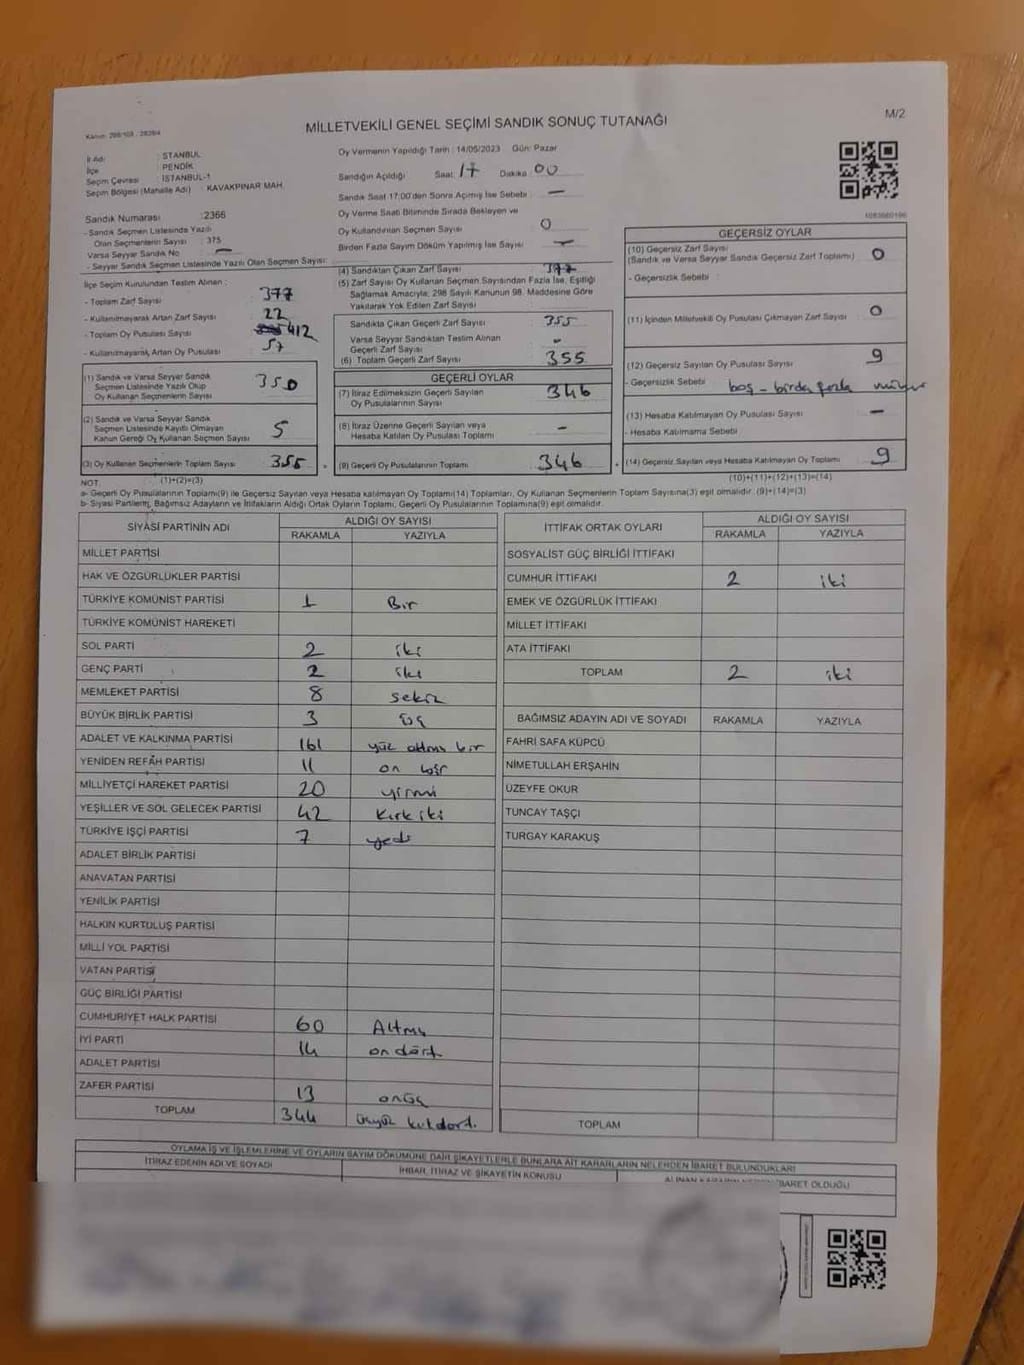 Kanun: 298/105 - 2839/4
M/2
MİLLETVEKİLİ GENEL SEÇİMİ SANDIK SONUÇ TUTANAĞI
İl Adı : STANBUL
İlçe : PENDİK
Seçim Çevresi : İSTANBUL-1
Seçim Bölgesi (Mahalle Adı) : KAVAKPINAR MAH.
Sandık Numarası : 2366
- Sandık Seçmen Listesinde Yazılı
Olan Seçmenlerin Sayısı : 375
Varsa Seyyar Sandık No –
- Seyyar Sandık Seçmen Listesinde Yazılı Olan Seçmen Sayısı:
Oy Vermenin Yapıldığı Tarih : 14/05/2023 Gün: Pazar
Sandığın Açıldığı Saat: 17 Dakika: 00
Sandık Saat 17:00'den Sonra Açılmış İse Sebebi : –
Oy Verme Saati Bitiminde Sırada Bekleyen ve
Oy Kullandırılan Seçmen Sayısı : 0
Birden Fazla Sayım Döküm Yapılmış İse Sayısı : –
1083660196
İlçe Seçim Kurulundan Teslim Alınan :
- Toplam Zarf Sayısı 377
- Kullanılmayarak Artan Zarf Sayısı : 22
- Toplam Oy Pusulası Sayısı 412
- Kullanılmayarak Artan Oy Pusulası 57
(1) Sandık ve Varsa Seyyar Sandık
Seçmen Listesinde Yazılı Olup
Oy Kullanan Seçmenlerin Sayısı 350
(2) Sandık ve Varsa Seyyar Sandık
Seçmen Listesinde Kayıtlı Olmayan
Kanun Gereği Oy Kullanan Seçmen Sayısı 5
(3) Oy Kullanan Seçmenlerin Toplam Sayısı 355
(1)+(2)=(3)
(4) Sandıktan Çıkan Zarf Sayısı
(5) Zarf Sayısı Oy Kullanan Seçmen Sayısından Fazla İse, Eşitliği
Sağlamak Amacıyla; 298 Sayılı Kanunun 98. Maddesine Göre
Yakılarak Yok Edilen Zarf Sayısı
Sandıkta Çıkan Geçerli Zarf Sayısı 355
Varsa Seyyar Sandıktan Teslim Alınan
Geçerli Zarf Sayısı –
(6) Toplam Geçerli Zarf Sayısı 355
GEÇERLİ OYLAR
(7) İtiraz Edilmeksizin Geçerli Sayılan
Oy Pusulalarının Sayısı 346
(8) İtiraz Üzerine Geçerli Sayılan veya
Hesaba Katılan Oy Pusulası Toplamı –
(9) Geçerli Oy Pusulalarının Toplamı 346
GEÇERSİZ OYLAR
(10) Geçersiz Zarf Sayısı
(Sandık ve Varsa Seyyar Sandık Geçersiz Zarf Toplamı) 0
- Geçersizlik Sebebi :
(11) İçinden Milletvekili Oy Pusulası Çıkmayan Zarf Sayısı 0
(12) Geçersiz Sayılan Oy Pusulası Sayısı 9
- Geçersizlik Sebebi boş - birden fazla mühür
(13) Hesaba Katılmayan Oy Pusulası Sayısı –
- Hesaba Katılmama Sebebi
(14) Geçersiz Sayılan veya Hesaba Katılmayan Oy Toplamı 9
(10)+(11)+(12)+(13)=(14)
NOT
a- Geçerli Oy Pusulalarının Toplamı(9) ile Geçersiz Sayılan veya Hesaba katılmayan Oy Toplamı(14) Toplamları, Oy Kullanan Seçmenlerin Toplam Sayısına(3) eşit olmalıdır. (9)+(14)=(3)
b- Siyasi Partilerin, Bağımsız Adayların ve İttifakların Aldığı Ortak Oyların Toplamı, Geçerli Oy Pusulalarının Toplamına(9) eşit olmalıdır.
SİYASİ PARTİNİN ADI ALDIĞI OY SAYISI
RAKAMLA YAZIYLA
MİLLET PARTİSİ
HAK VE ÖZGÜRLÜKLER PARTİSİ
TÜRKİYE KOMÜNİST PARTİSİ 1 Bir
TÜRKİYE KOMÜNİST HAREKETİ
SOL PARTİ 2 iki
GENÇ PARTİ 2 iki
MEMLEKET PARTİSİ 8 sekiz
BÜYÜK BİRLİK PARTİSİ 3 üç
ADALET VE KALKINMA PARTİSİ 161 yüz altmış bir
YENİDEN REFAH PARTİSİ 11 on bir
MİLLİYETÇİ HAREKET PARTİSİ 20 yirmi
YEŞİLLER VE SOL GELECEK PARTİSİ 42 kırk iki
TÜRKİYE İŞÇİ PARTİSİ 7 yedi
ADALET BİRLİK PARTİSİ
ANAVATAN PARTİSİ
YENİLİK PARTİSİ
HALKIN KURTULUŞ PARTİSİ
MİLLİ YOL PARTİSİ
VATAN PARTİSİ
GÜÇ BİRLİĞİ PARTİSİ
CUMHURİYET HALK PARTİSİ 60 Altmış
İYİ PARTİ 14 on dört
ADALET PARTİSİ
ZAFER PARTİSİ 13 onüç
TOPLAM 344 üçyüz kırkdört.
İTTİFAK ORTAK OYLARI ALDIĞI OY SAYISI
RAKAMLA YAZIYLA
SOSYALİST GÜÇ BİRLİĞİ İTTİFAKI
CUMHUR İTTİFAKI 2 iki
EMEK VE ÖZGÜRLÜK İTTİFAKI
MİLLET İTTİFAKI
ATA İTTİFAKI
TOPLAM 2 iki
BAĞIMSIZ ADAYIN ADI VE SOYADI RAKAMLA YAZIYLA
FAHRİ SAFA KÜPCÜ
NİMETULLAH ERŞAHİN
ÜZEYFE OKUR
TUNCAY TAŞÇI
TURGAY KARAKUŞ
TOPLAM
OYLAMA İŞ VE İŞLEMLERİNE VE OYLARIN SAYIM DÖKÜMÜNE DAİR ŞİKAYETLERLE BUNLARA AİT KARARLARIN NELERDEN İBARET BULUNDUKLARI
İTİRAZ EDENİN ADI VE SOYADI İHBAR, İTİRAZ VE ŞİKAYETİN KONUSU İBARET OLDUĞU